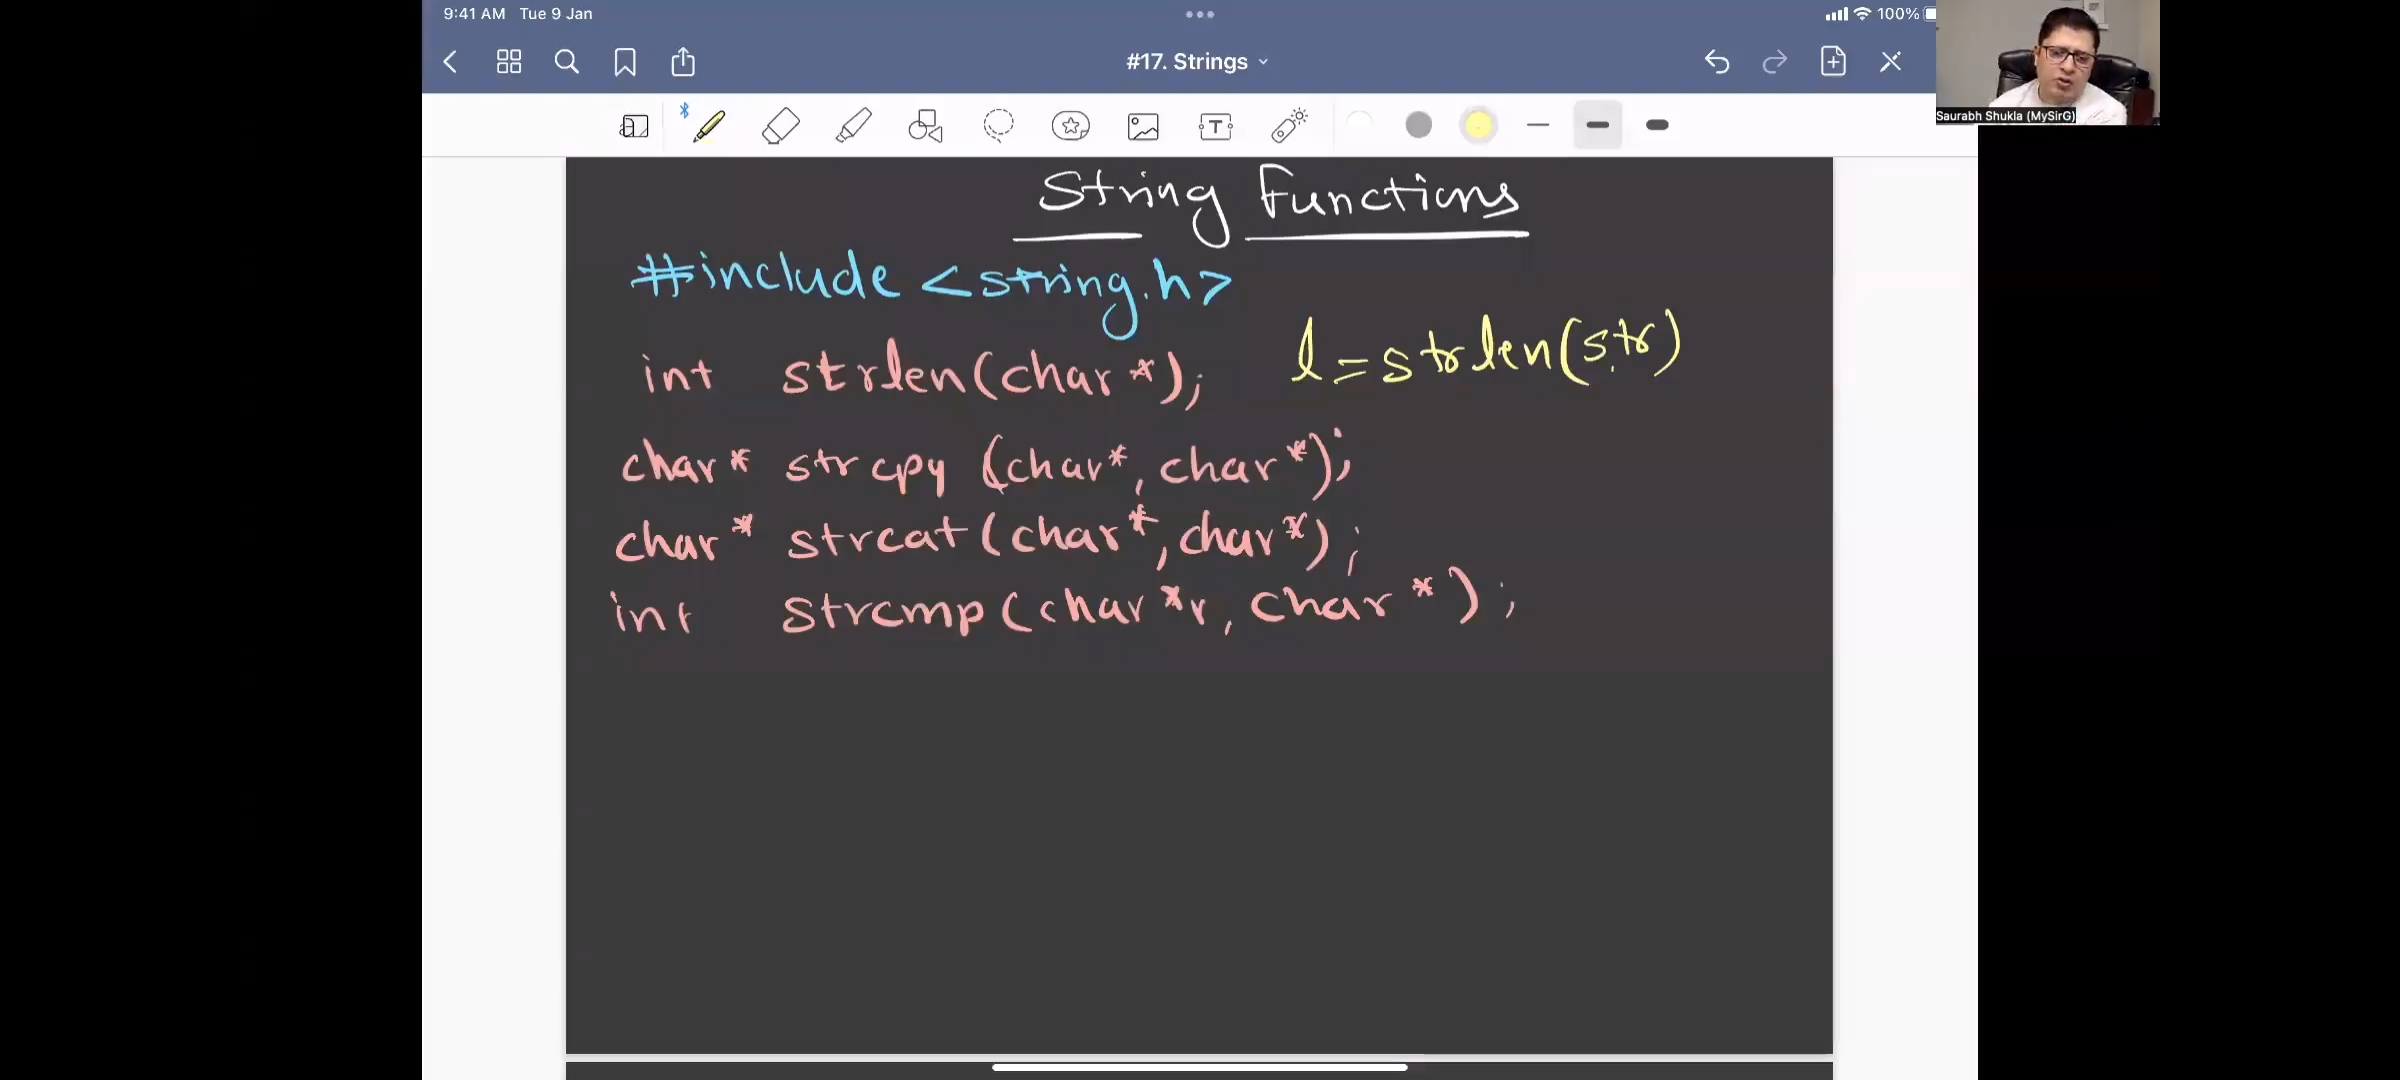 9:41 AM Tue 9 Jan
100%
#17. Strings
Saurabh Shukla (MySirG)
String Functions
#include <string.h>
int strlen(char*);
l=strlen(str)
char* strcpy (char*, char*);
char* strcat(char*, char*);
int strcmp(char*r, char*);